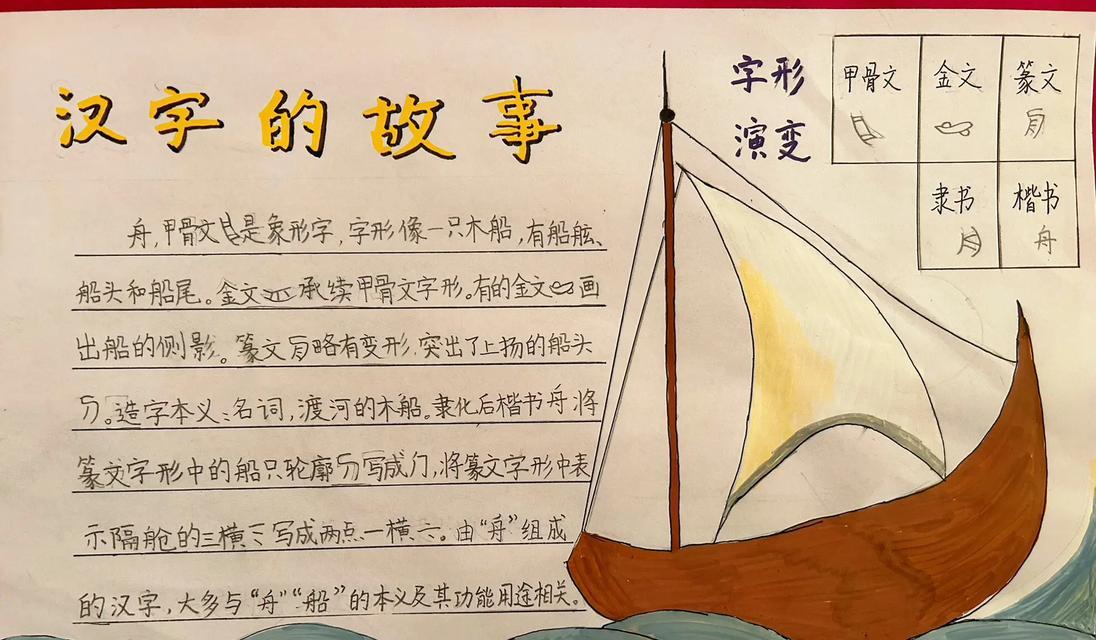 汉字的故事
字形
演变
甲骨文 金文 篆文
隶书 楷书
舟
舟,甲骨文是象形字,字形像一只木船,有船舷、
船头和船尾。金文承续甲骨文字形。有的金文画
出船的侧影。篆文略有变形,突出了上扬的船头
。造字本义:名词,渡河的木船。隶化后楷书舟将
篆文字形中的船只轮廓写成门,将篆文字形中表
示隔舱的三横写成两点一横。由“舟”组成
的汉字,大多与“舟”“船”的本义及其功能用途相关。